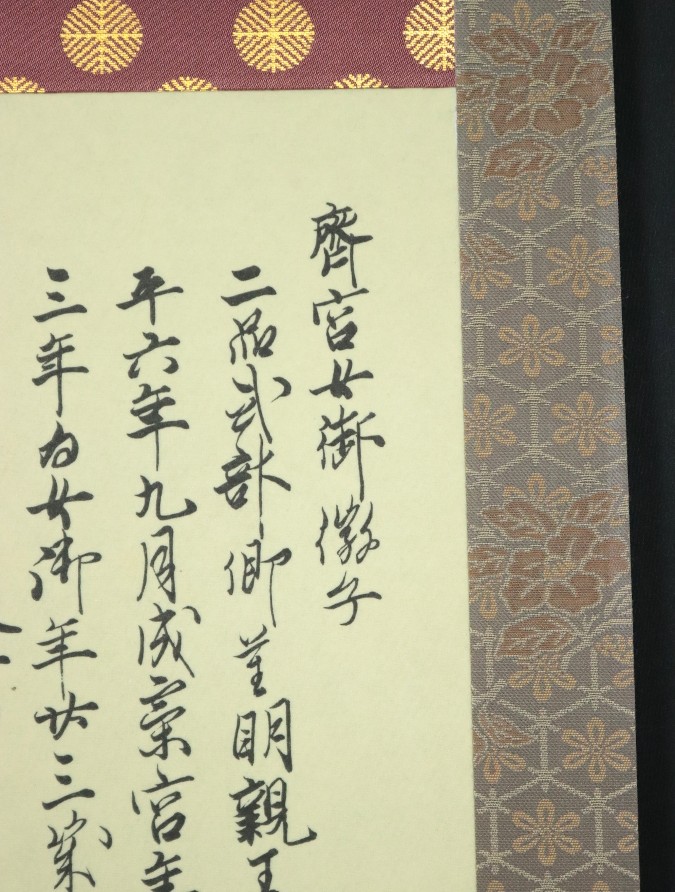 齋宮女御 徽子
二品式部卿重明親王
平六年九月成齋宮年
三年為女御年廿三歳